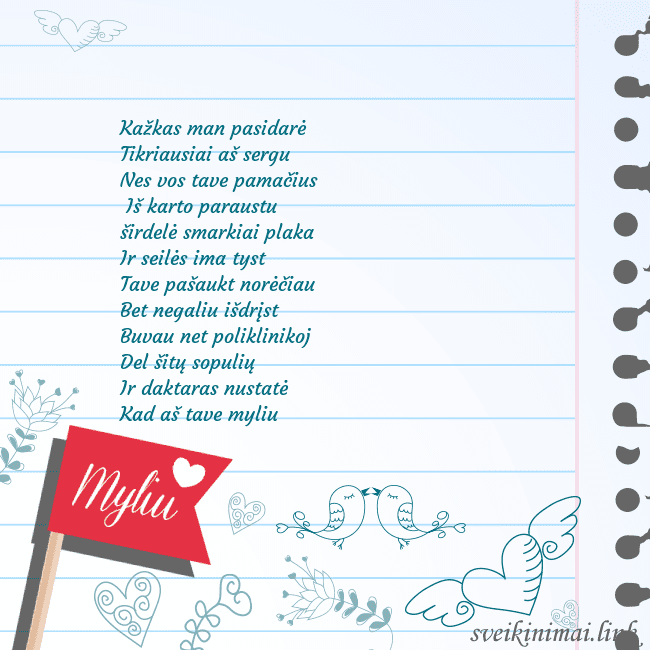 Kažkas man pasidarė
Tikriausiai aš sergu
Nes vos tave pamačius
Iš karto paraustu
širdelė smarkiai plaka
Ir seilės ima tyst
Tave pašaukt norėčiau
Bet negaliu išdrįst
Buvau net poliklinikoj
Del šitų sopulių
Ir daktaras nustatė
Kad aš tave myliu
Myliu
sveikinimai.link